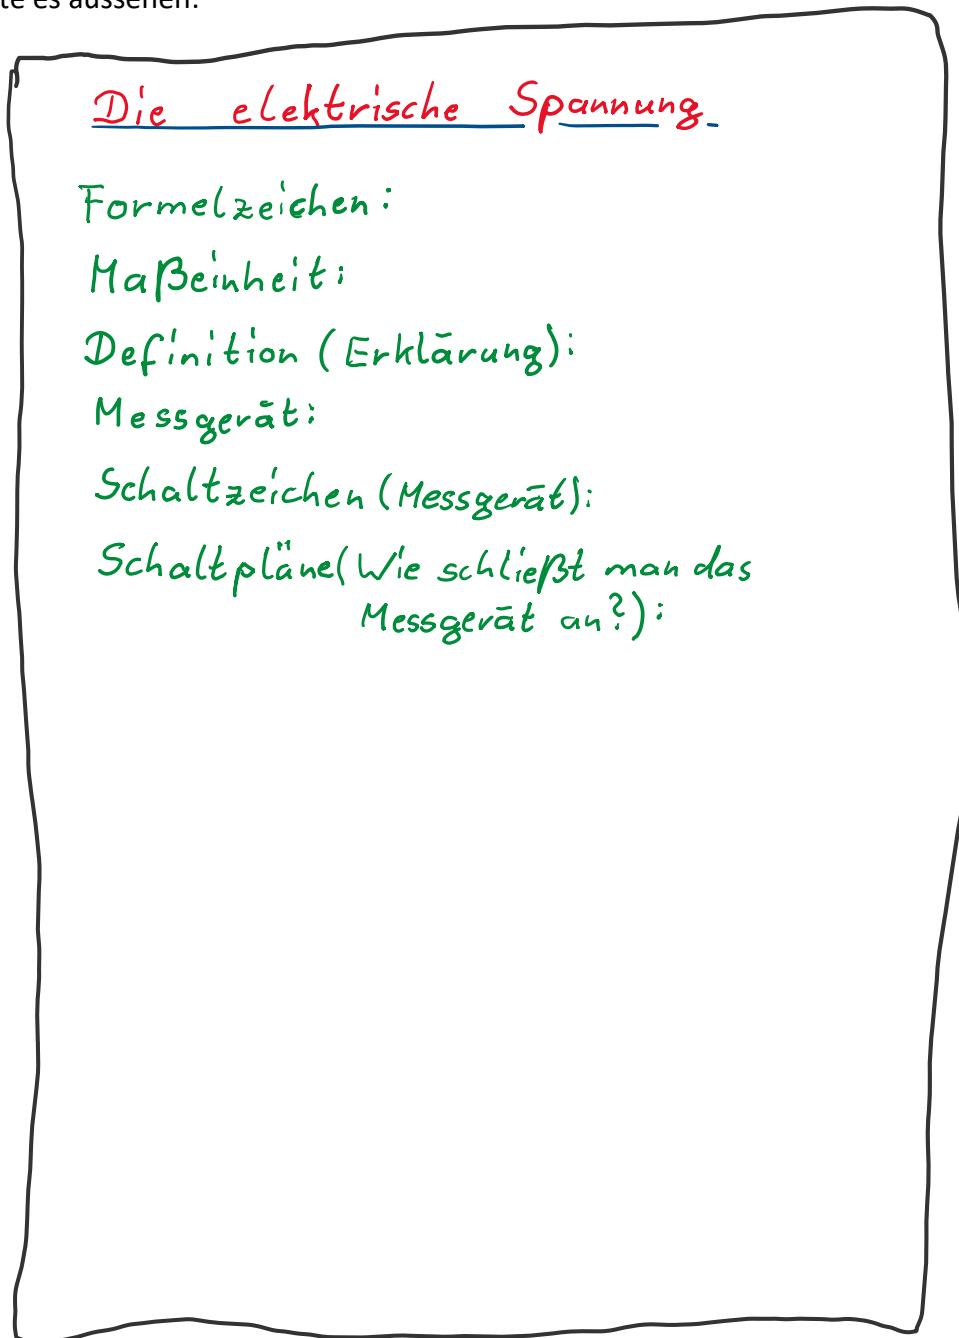 te es aussehen:
Die elektrische Spannung
Formelzeichen:
Maßeinheit:
Definition (Erklärung):
Messgerät:
Schaltzeichen (Messgerät):
Schaltpläne (Wie schließt man das
Messgerät an?):